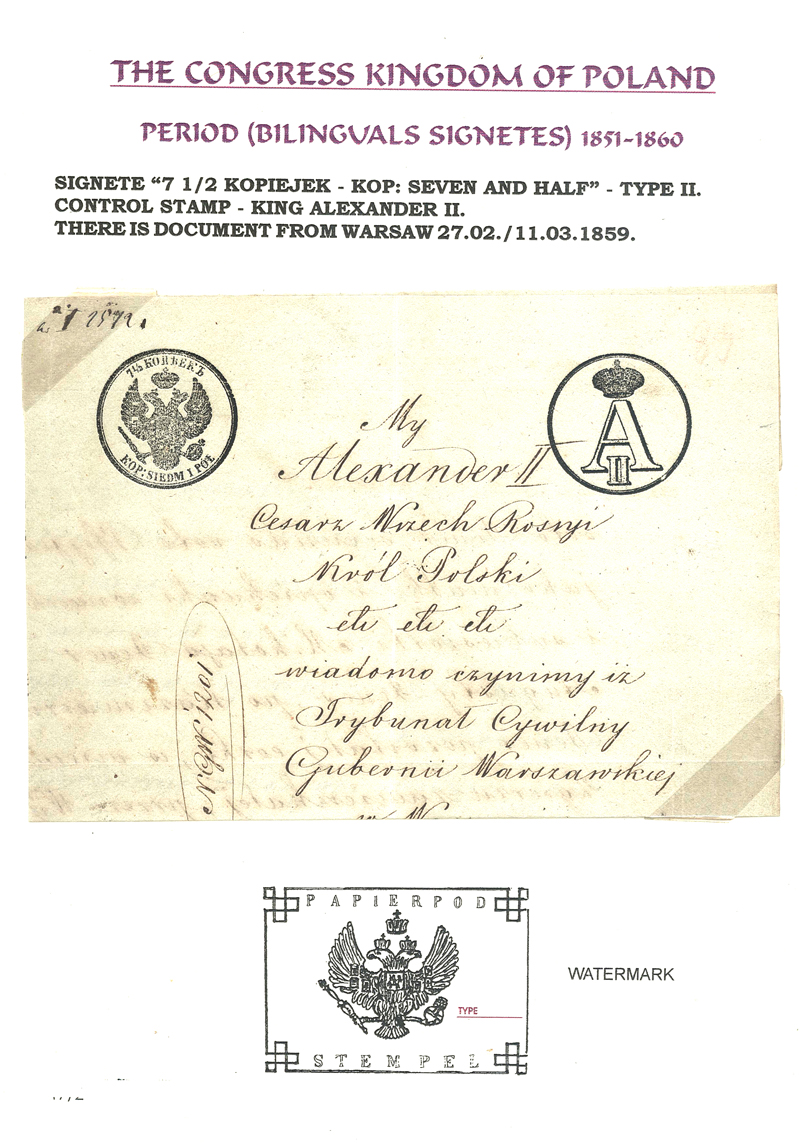 THE CONGRESS KINGDOM OF POLAND
PERIOD (BILINGUALS SIGNETES) 1851-1860
SIGNETE “7 1/2 KOPIEJEK - KOP: SEVEN AND HALF” - TYPE II.
CONTROL STAMP - KING ALEXANDER II.
THERE IS DOCUMENT FROM WARSAW 27.02./11.03.1859.
7½ КОПѢЕКЪ
KOP: SIEDM I PÓŁ
A
II
My
Alexander II
Cesarz Wszech Rossyi
Król Polski
etc etc etc
wiadomo czynimy iż
Trybunał Cywilny
Gubernii Warszawskiej
w
PAPIER POD
TYPE
STEMPEL
WATERMARK